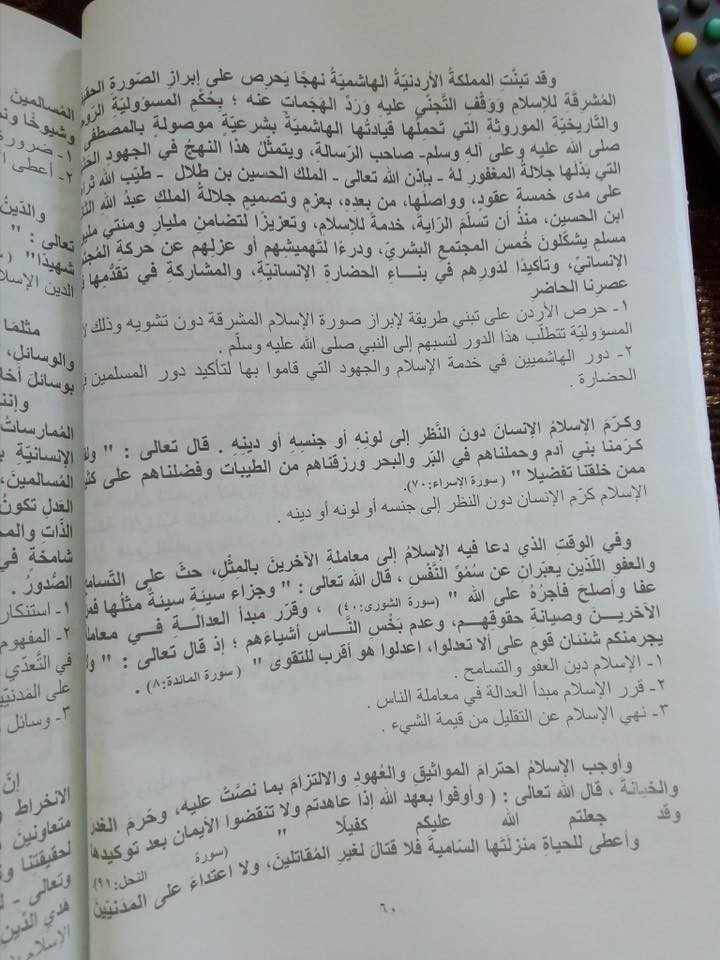 وقد تبنّت المملكةُ الأردنيّةُ الهاشميّةُ نهجًا يَحرِص على إبرازِ الصّورةِ
المُشرقَةِ للإسلامِ ووَقْفِ التَّجنّي عليهِ وَرَدِّ الهَجَماتِ عنه ؛ بِحُكْمِ المسؤوليّةِ
والتّاريخيّةِ الموروثةِ التي تَحمِلُها قيادتُها الهاشميّةُ بشرعيّةٍ موصولةٍ بالمصطفى
صلى الله عليه وعلى آله وسلم- صاحب الرسالة، ويتمثلُ هذا النهجُ في الجهودِ
التي بَذَلَها جلالةُ المغفورِ لهُ - بإذن الله تعالى - الملك الحسين بن طلال - طيّب الله
على مدى خمسة عقود، وواصلَها، من بعدِهِ، بعزمٍ وتصميمٍ جلالةُ الملك عبدُ اللهِ
ابن الحسين، منذُ أن تسلّمَ الرّاية، خدمةً للإسلام، وتعزيزًا لتضامنِ مليارٍ ومئتي
مسلم يشكّلونَ خُمسَ المجتمع البشريّ، ودرءًا لتهميشِهم أو عزلِهم عن حركة
الإنسانيّ، وتأكيدًا لدورِهم في بناءِ الحضارةِ الإنسانيّة، والمشاركةِ في تقدُّمِها
عصرِنا الحاضر
١- حرص الأردن على تبني طريقة لإبراز صورة الإسلام المشرقة دون تشويه وذلك
المسؤوليّة تتطلّب هذا الدور لنسبهم إلى النبي صلى الله عليه وسلّم .
٢- دور الهاشميين في خدمة الإسلام والجهود التي قاموا بها لتأكيد دور المسلمين
الحضارة .
وكرّمَ الإسلامُ الإنسانَ دونَ النَّظرِ إلى لونِهِ أو جنسِهِ أو دينِهِ . قال تعالى : "
كرّمنا بني آدم وحملناهم في البَر والبحر ورزقناهم من الطيبات وفضلناهم على
ممن خلقنا تفضيلا " (سورة الإسراء:٧٠).
الإسلام كرّم الإنسان دون النظر إلى جنسه أو لونه أو دينه .
وفي الوقتِ الذي دعا فيه الإسلامُ إلى معاملةِ الآخرينَ بالمِثْلِ، حثَّ على
والعفو اللّذَين يعبّرانِ عن سُمُوّ النَّفْسِ ، قال الله تعالى : " وجزاء سيئةٍ سيئةٌ مثلُها
عفا وأصلح فأجرُهُ على الله " (سورة الشورى:٤٠) ، وقرّر مبدأ العدالةِ في
الآخرينَ وصيانةِ حقوقِهم، وعدمِ بَخْسِ النَّاسِ أشياءَهم ؛ إذ قال تعالى : "
يجرمنكم شنئان قومٍ على ألا تعدلوا، اعدلوا هو أقرب للتقوى " ( سورة المائدة:٨) .
١- الإسلام دين العفو والتسامح .
٢- قرر الإسلام مبدأ العدالة في معاملة الناس .
٣- نهي الإسلام عن التقليل من قيمة الشيء .
وأوجب الإسلامُ احترامَ المواثيقِ والعُهودِ والالتزامَ بما نصّتْ عليه، وحَرّمَ الغَدرَ
والخيانةَ ، قال الله تعالى : ( وأوفوا بعهد الله إذا عاهدتم ولا تنقضوا الأيمان بعد توكيدها
وقد جعلتم الله عليكم كفيلا " (سورة النحل:٩١).
وأعطى للحياةِ منزلَتَها السّاميةَ فلا قتالَ لغيرِ المُقاتلين، ولا اعتداءَ على المَدَنيّين
٦٠
المُسالمينَ
١- ضرورة
٢- أعطى
تعالى : "
شهيدًا"
الدين الإسلا
مثلما
والوسائل،
المُمارساتُ
الإنسانيّة
المسالمين،
العَدلِ تكونُ
شامخة في
الصّدورُ .
١- استنكار
٢- المفهوم
في التّعدّي
٣- وسائل
إنَّ
الانخراط
متعاونينَ
لحقيقتنا
وتعالى -
هدي الدّين